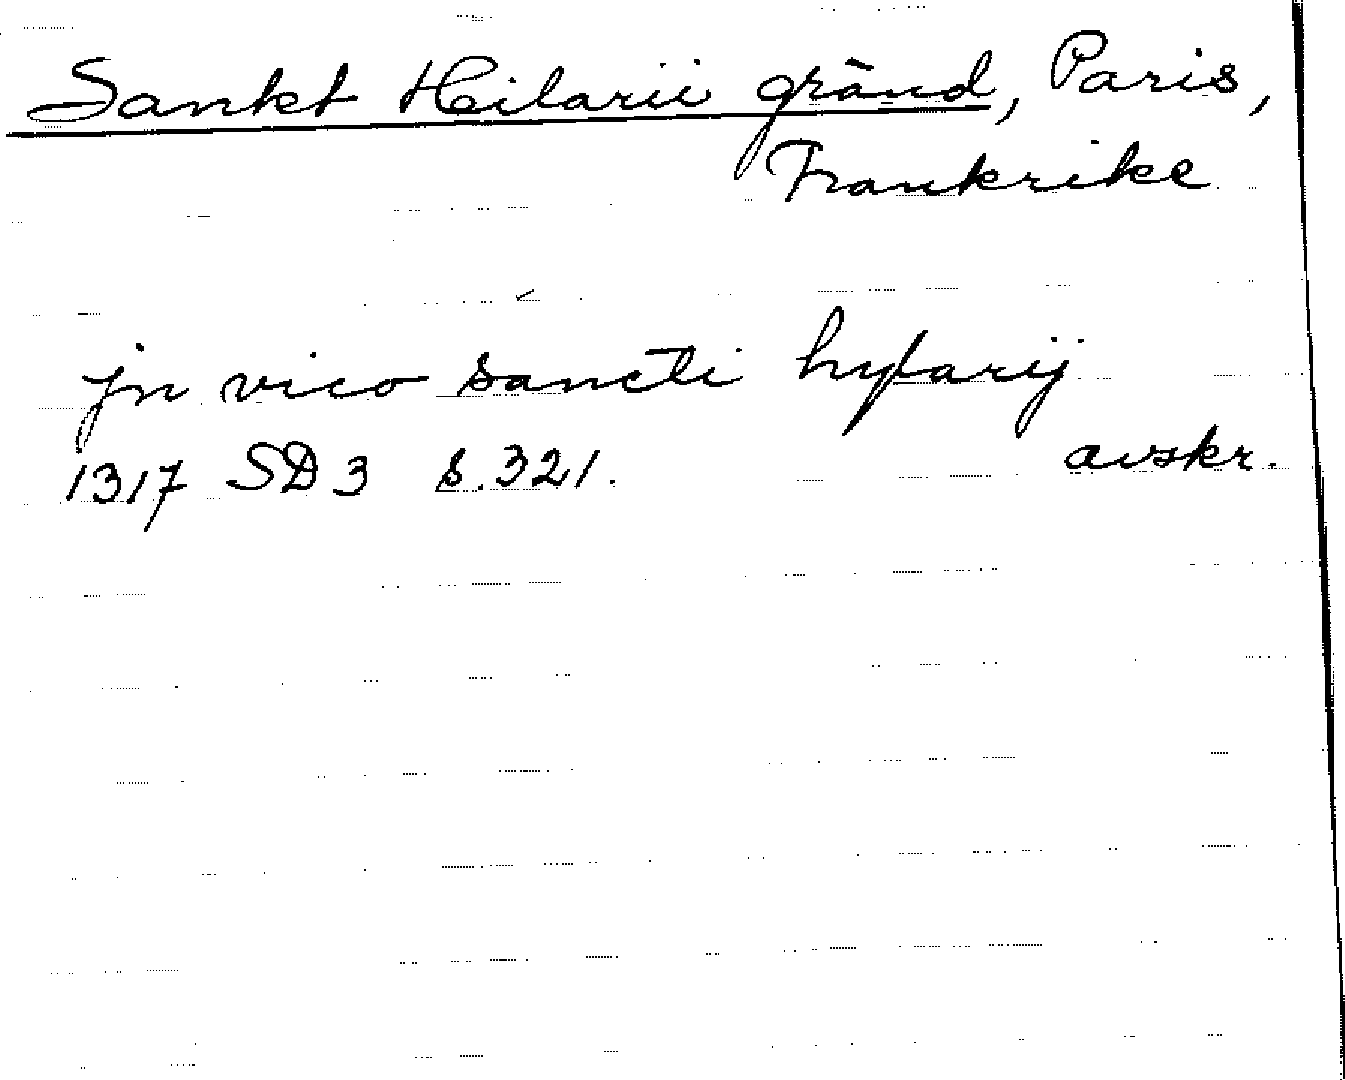 Sankt Hilarii gränd, Paris,
Frankrike
jn vico sancti hylarij
1317 SD 3 s. 321. avskr.